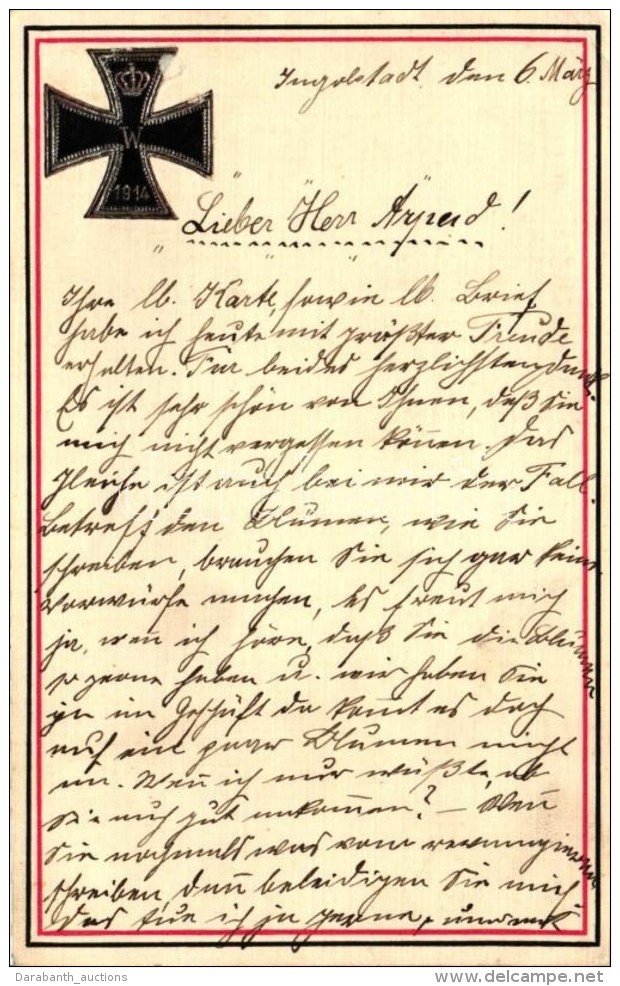 W
1914
Ingolstadt, den 6. März
Lieber Herr Árpád!
Ihre lb. Karte, sowie lb. Brief
habe ich heute mit größter Freude
erhalten. Für beides herzlichsten Dank.
Es ist sehr schön von Ihnen, daß Sie
mich nicht vergessen können. Das
Gleiche ist auch bei mir der Fall.
Betreff den Blumen, wie Sie
schreiben, brauchen Sie sich gar keine
Vorwürfe machen, es freut mich
ja, wenn ich höre, daß Sie die Blumen
so gerne haben u. wir haben Sie
ja im Geschäft da kom̄t es doch
auf ein paar Blumen nicht
an. Wen̄ ich nur wüßte, ob
Sie auch gut ankommen? – Wen̄
Sie nochmals was vom revangieren
schreiben, dan̄ beleidigen Sie mich
Das tue ich ja gerne,
Darabanth_auctions